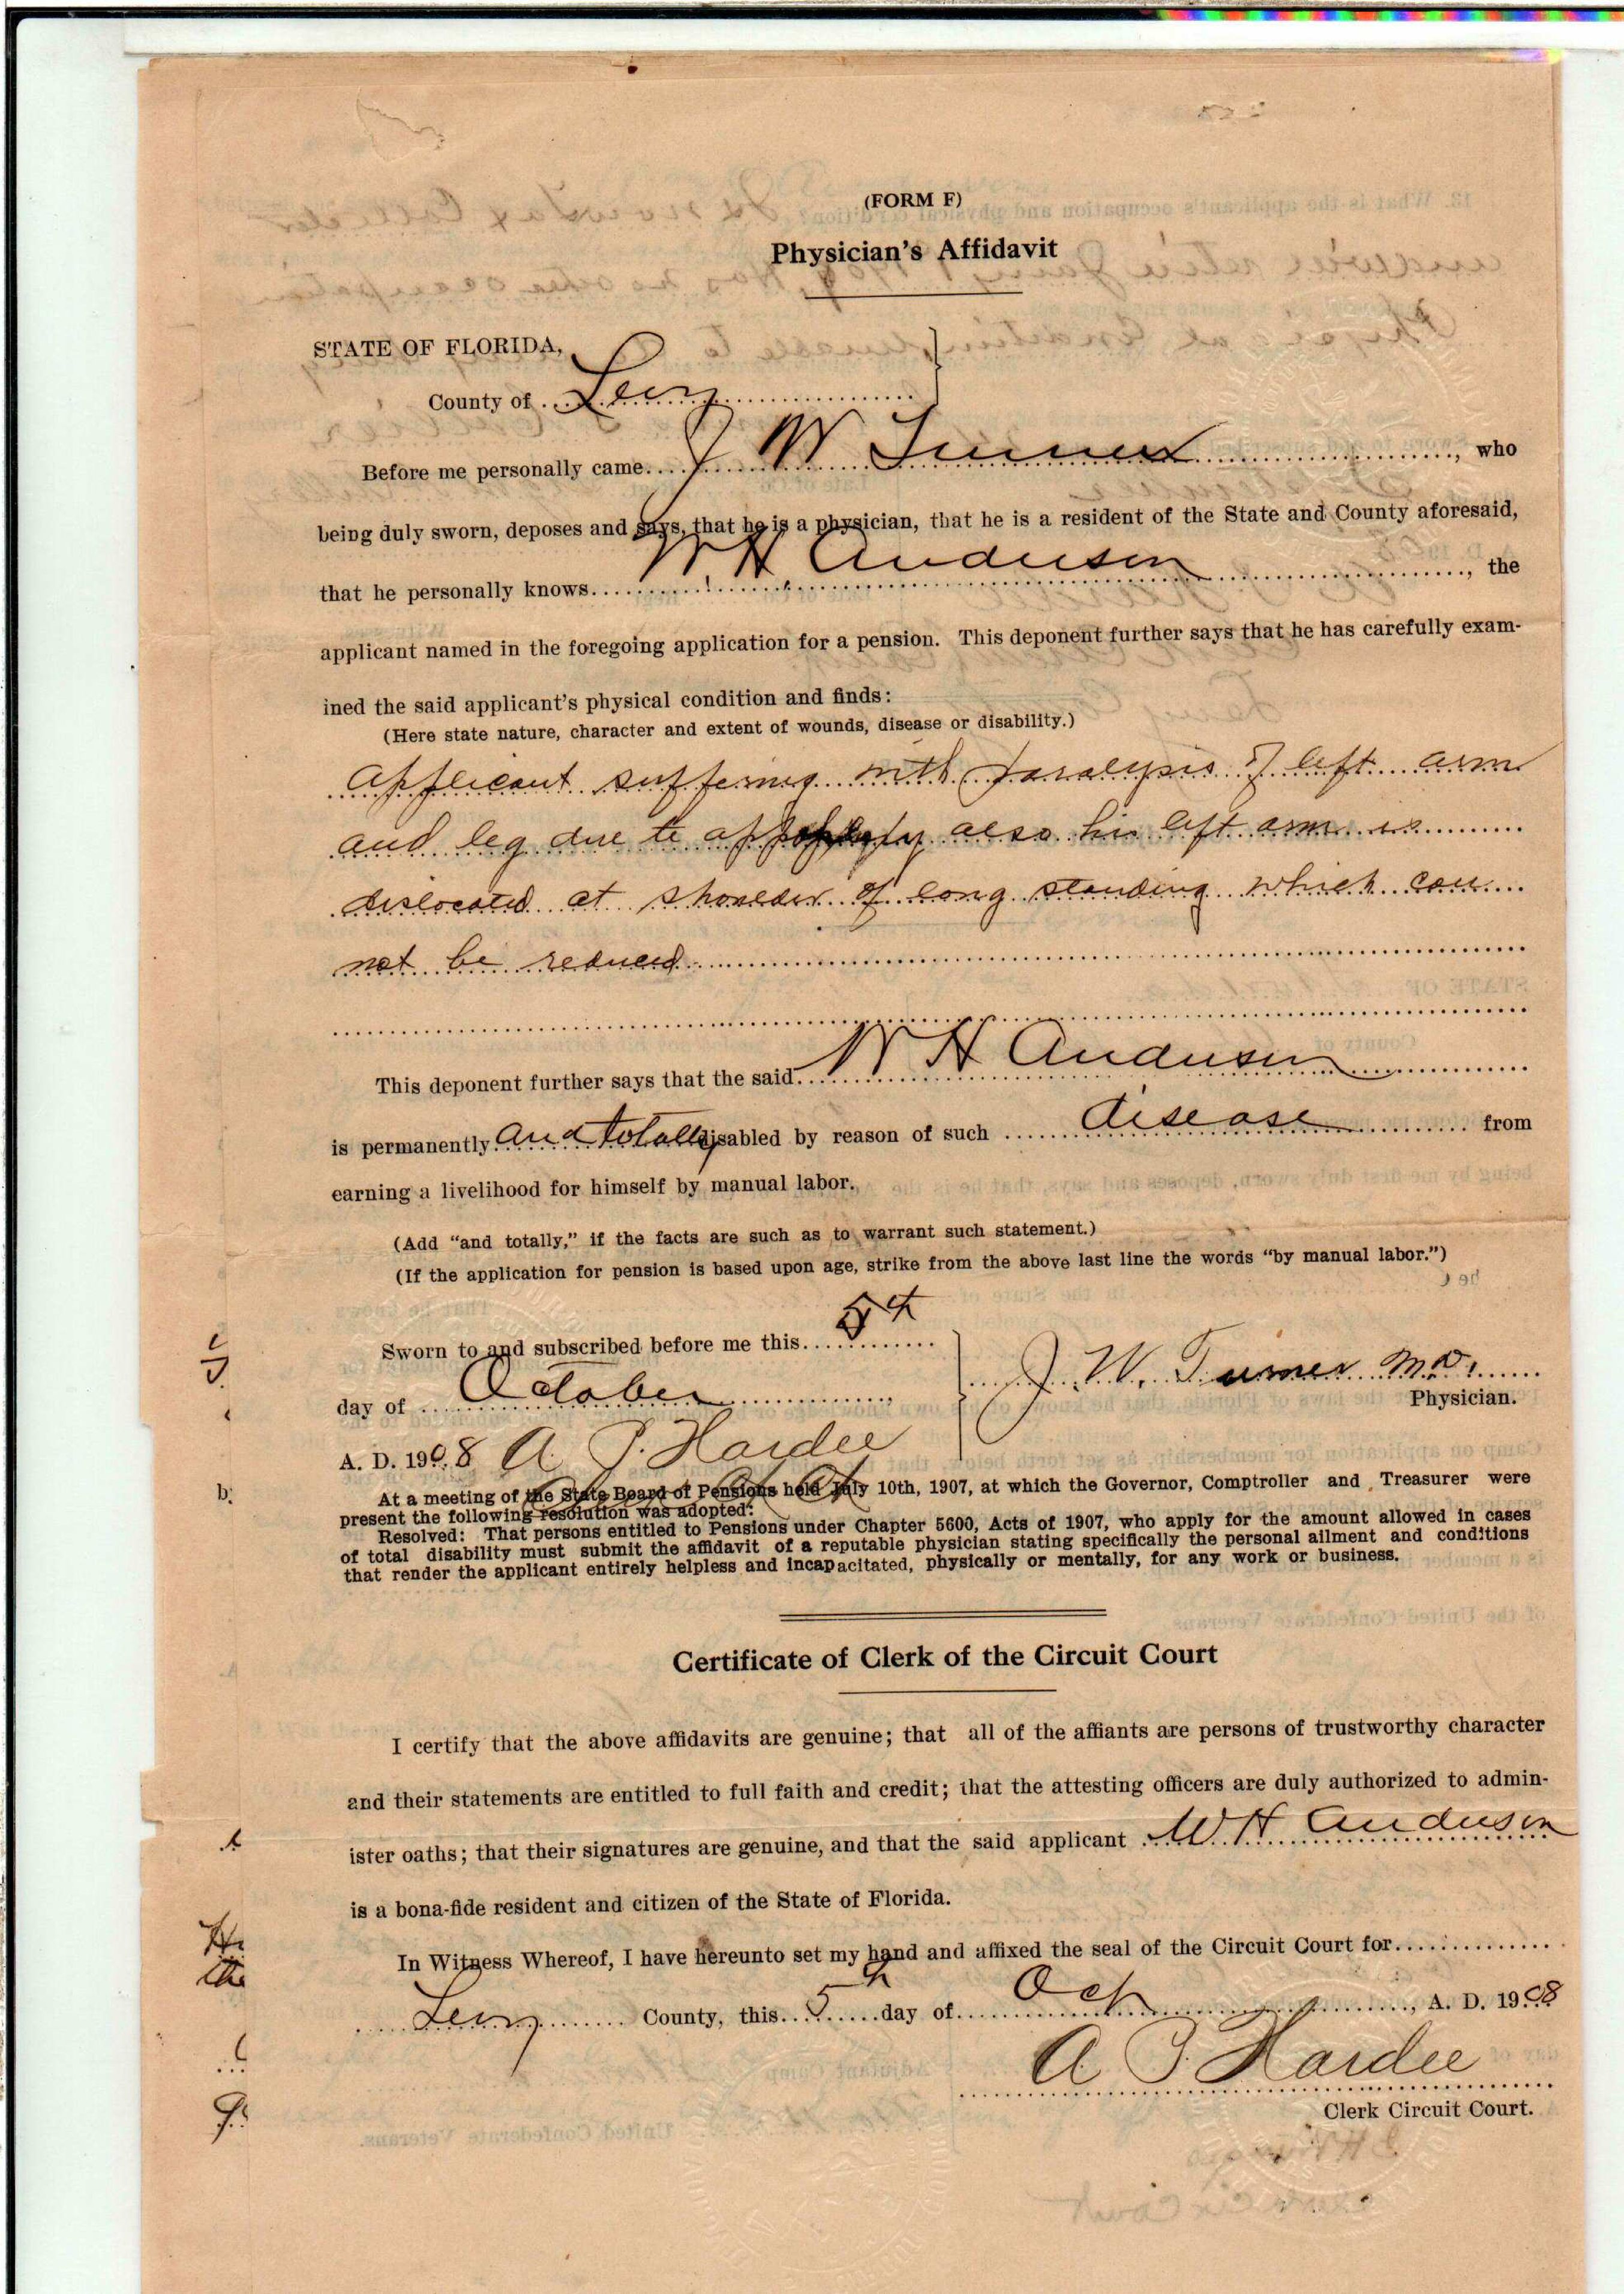 (FORM F)
Physician's Affidavit
STATE OF FLORIDA,
County of Levy
Before me personally came J W Turner, who
being duly sworn, deposes and says, that he is a physician, that he is a resident of the State and County aforesaid,
that he personally knows W H Anderson, the
applicant named in the foregoing application for a pension. This deponent further says that he has carefully exam-
ined the said applicant's physical condition and finds:
(Here state nature, character and extent of wounds, disease or disability.)
Applicant suffering with paralysis of left arm
and leg due to also his left arm is
dislocated at shoulder of long standing which can
not be reduced
This deponent further says that the said W H Anderson
is permanently and totally disabled by reason of such disease from
earning a livelihood for himself by manual labor.
(Add "and totally," if the facts are such as to warrant such statement.)
(If the application for pension is based upon age, strike from the above last line the words "by manual labor.")
Sworn to and subscribed before me this 5th
day of October
J. W. Turner M.D.
Physician.
A. D. 1908 A. P. Hardee
Clerk Ct Ct
At a meeting of the State Board of Pensions held July 10th, 1907, at which the Governor, Comptroller and Treasurer were
present the following resolution was adopted:
Resolved: That persons entitled to Pensions under Chapter 5600, Acts of 1907, who apply for the amount allowed in cases
of total disability must submit the affidavit of a reputable physician stating specifically the personal ailment and conditions
that render the applicant entirely helpless and incapacitated, physically or mentally, for any work or business.
Certificate of Clerk of the Circuit Court
I certify that the above affidavits are genuine; that all of the affiants are persons of trustworthy character
and their statements are entitled to full faith and credit; that the attesting officers are duly authorized to admin-
ister oaths; that their signatures are genuine, and that the said applicant W H Anderson
is a bona-fide resident and citizen of the State of Florida.
In Witness Whereof, I have hereunto set my hand and affixed the seal of the Circuit Court for
Levy County, this 5th day of Oct, A. D. 1908
A P. Hardee
Clerk Circuit Court.